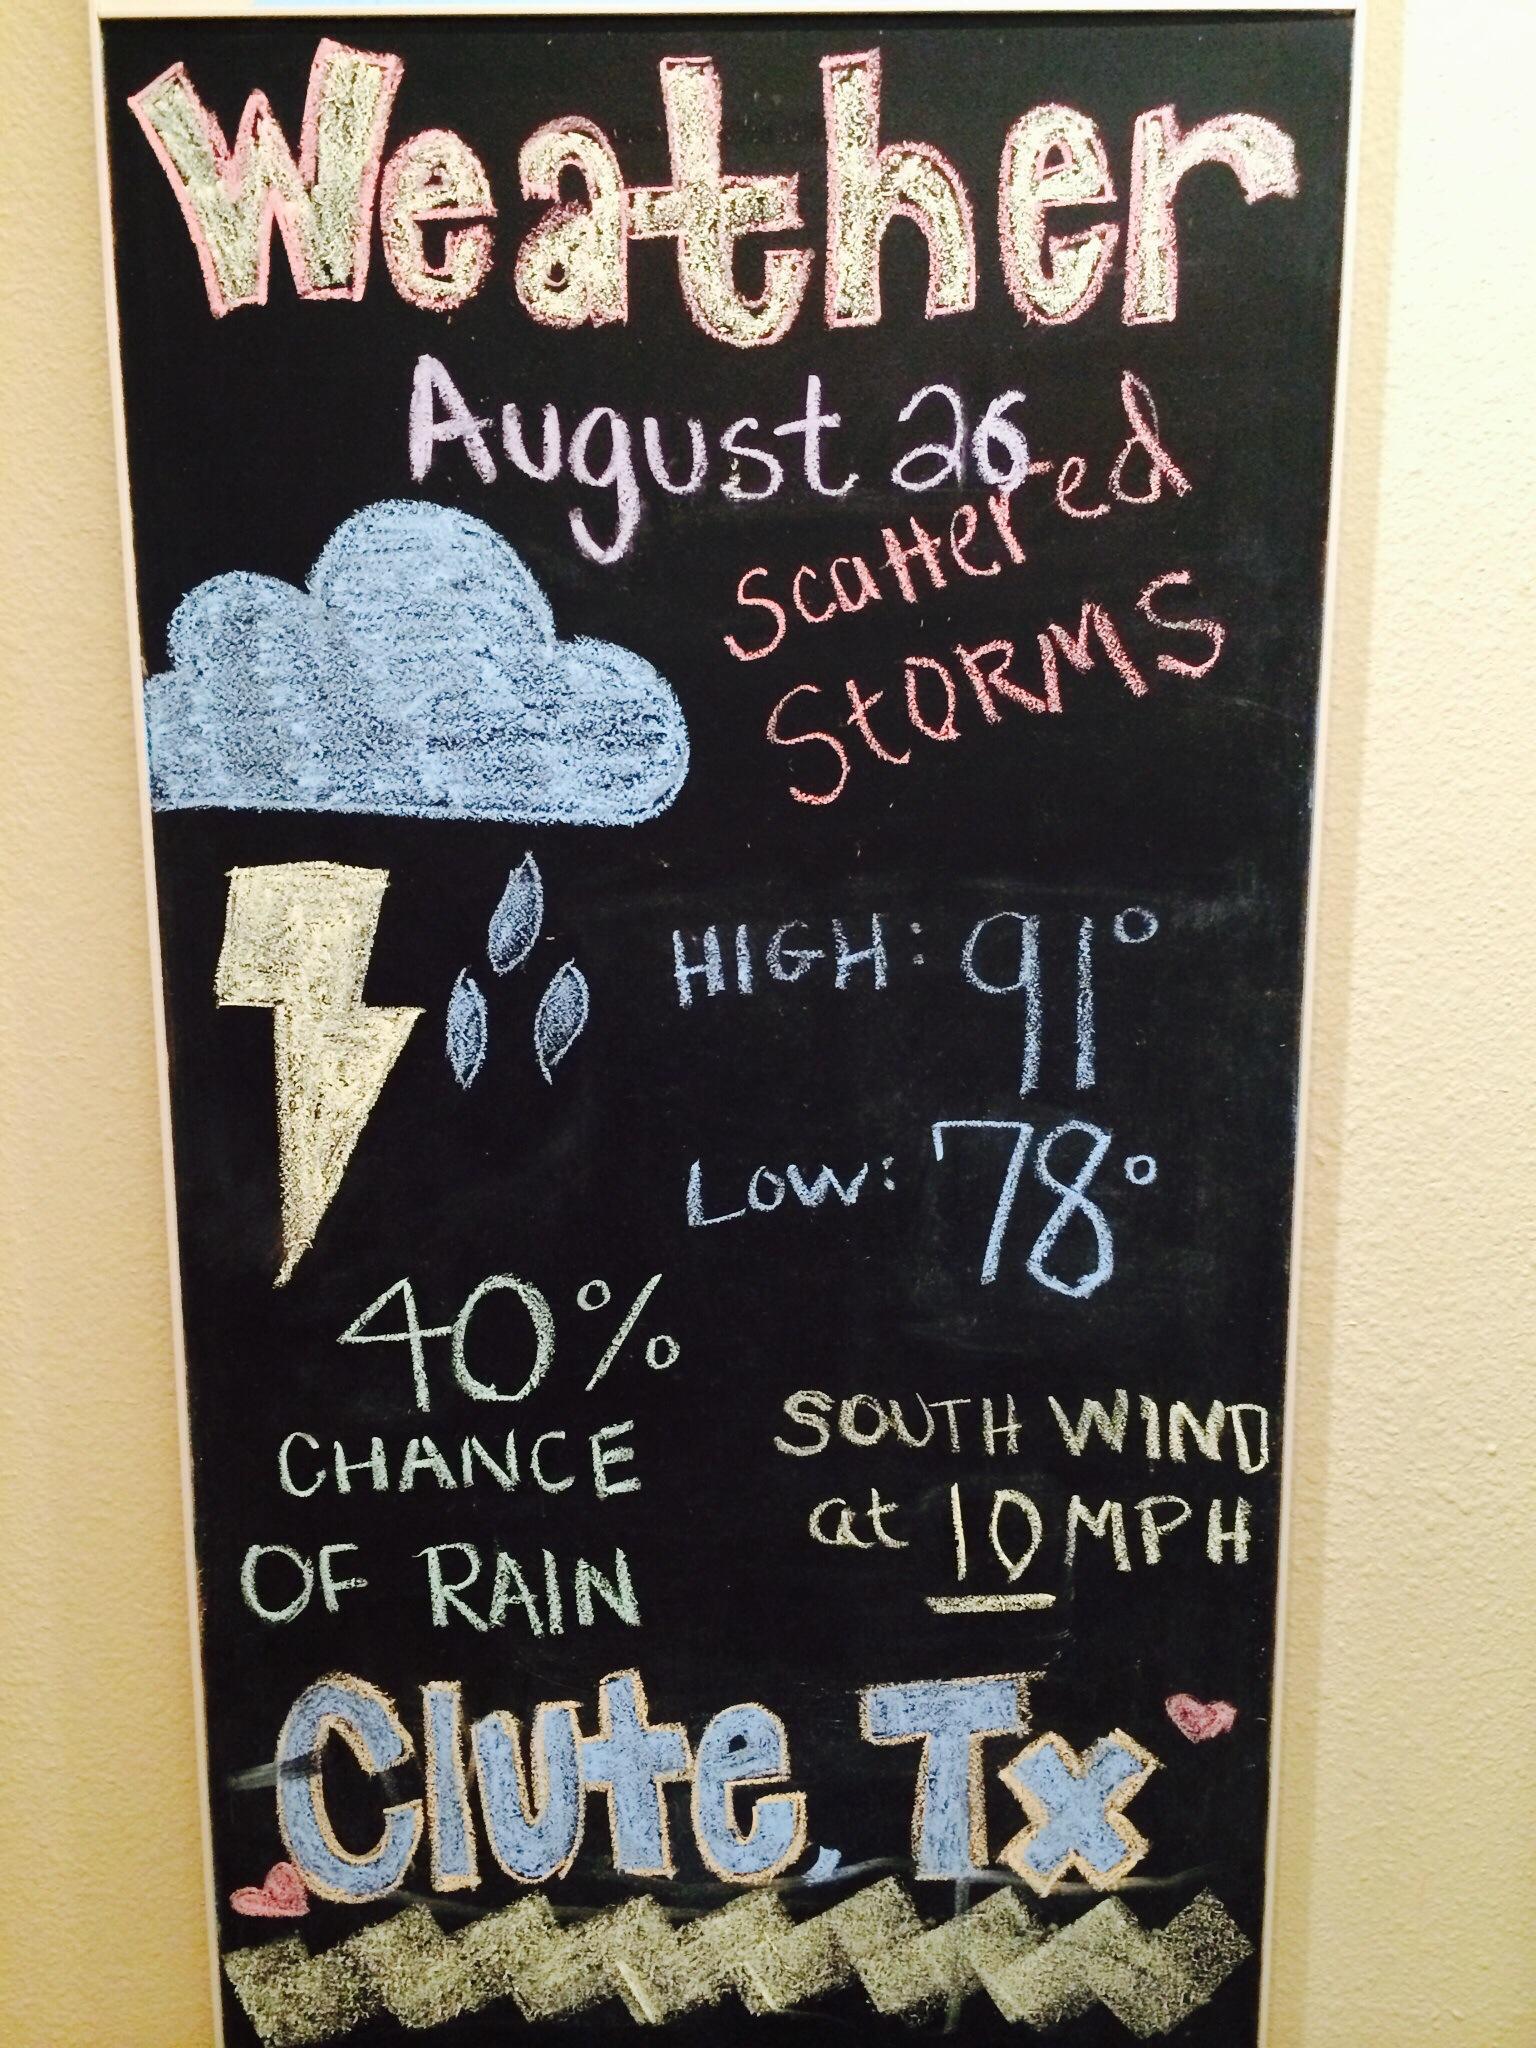 Weather
August 26
Scattered
StORMS
HIGH: 91°
Low: 78°
40%
CHANCE
OF RAIN
SOUTH WIND
at 10 MPH
Clute, Tx